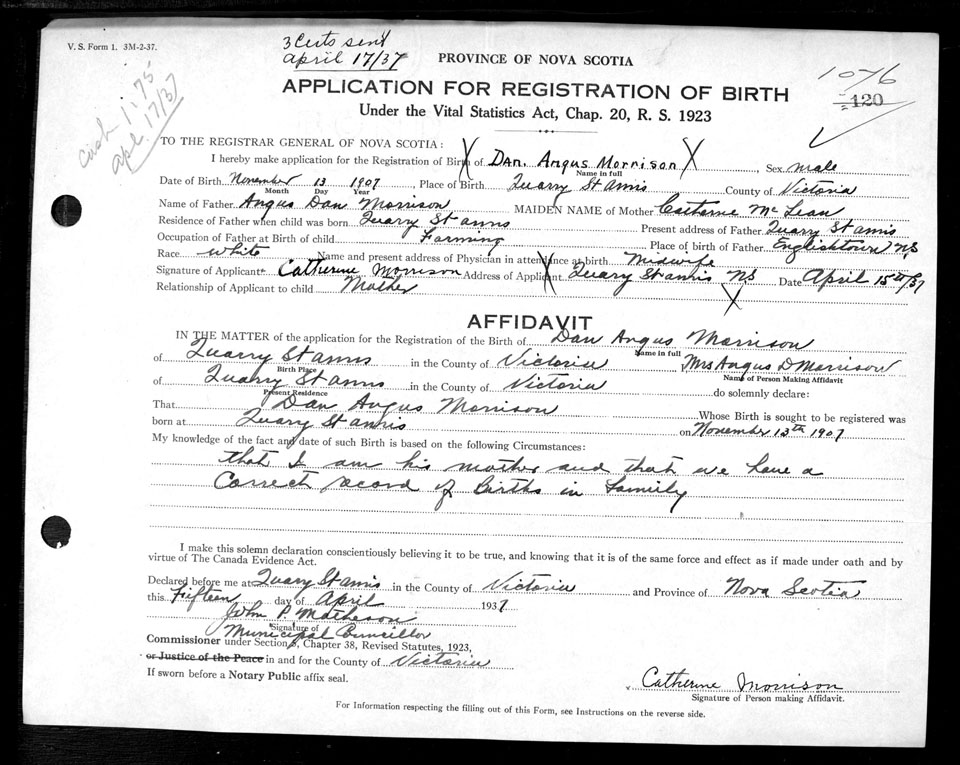 V. S. Form 1. 3M-2-37.
3 Certs sent
april 17/37
PROVINCE OF NOVA SCOTIA
Cash 1.75
apl. 17/37
1076
120
APPLICATION FOR REGISTRATION OF BIRTH
Under the Vital Statistics Act, Chap. 20, R. S. 1923
TO THE REGISTRAR GENERAL OF NOVA SCOTIA:
I hereby make application for the Registration of Birth of Dan. Angus Morrison Sex male
Name in full
Date of Birth November 13 1907, Place of Birth Quarry St anns County of Victoria
Month Day Year
Name of Father Angus Dan Morrison MAIDEN NAME of Mother McLean
Residence of Father when child was born Quarry St anns Present address of Father Quarry St anns
Occupation of Father at Birth of child Farming Place of birth of Father Englishtown N.S
Race white Name and present address of Physician in attendance at birth Midwife
Signature of Applicant Catherine Morrison Address of Applicant Quarry St anns N.S Date April 15th/37
Relationship of Applicant to child Mother
AFFIDAVIT
IN THE MATTER of the application for the Registration of the Birth of Dan Angus Morrison
Name in full
of Quarry St anns in the County of Victoria Mrs Angus D Morrison
Birth Place Name of Person Making Affidavit
of Quarry St anns in the County of Victoria do solemnly declare:
Present Residence
That Dan Angus Morrison Whose Birth is sought to be registered was
born at Quarry St anns on November 13th 1907
My knowledge of the fact and date of such Birth is based on the following Circumstances:
that I am his mother and that we have a
Correct record of Births in family
I make this solemn declaration conscientiously believing it to be true, and knowing that it is of the same force and effect as if made under oath and by
virtue of The Canada Evidence Act.
Declared before me at Quary St anns in the County of Victoria and Province of Nova Scotia
this Fifteen day of April 1937
John P. Matheson
Signature of
Municipal Councillor
Commissioner under Section 8, Chapter 38, Revised Statutes, 1923,
or Justice of the Peace in and for the County of Victoria
If sworn before a Notary Public affix seal.
Catherine Morrison
Signature of Person making Affidavit.
For Information respecting the filling out of this Form, see Instructions on the reverse side.